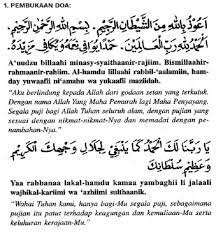 1. PEMBUKAAN DOA:
أَعُوذُ بِاللهِ مِنَ الشَّيْطَانِ الرَّجِيْمِ. بِسْمِ اللهِ الرَّحْمٰنِ الرَّحِيْمِ.
اَلْحَمْدُ لِلّٰهِ رَبِّ الْعَالَمِيْنَ. حَمْدًا يُوَافِيْ نِعَمَهُ وَيُكَافِئُ مَزِيْدَهُ.
A'uudzu billaahi minasy-syaithaanir-rajiim. Bismillaahir-
rahmaanir-rahiim. Al-hamdu lillaahi rabbil-'aalamiin, ham-
day yuwaafii ni'amahu wa yukaafii maziidah.
"Aku berlindung kepada Allah dari godaan setan yang terkutuk.
Dengan nama Allah Yang Maha Pemurah lagi Maha Penyayang.
Segala puji bagi Allah Tuhan seluruh alam, dengan pujian yang
sesuai dengan nikmat-nikmat-Nya dan memadai dengan pe-
nambahan-Nya."
يَا رَبَّنَا لَكَ الْحَمْدُ كَمَا يَنْبَغِيْ لِجَلَالِ وَجْهِكَ الْكَرِيْمِ
وَعَظِيْمِ سُلْطَانِكَ.
Yaa rabbanaa lakal-hamdu kamaa yambaghii li jalaali
wajhikal-kariimi wa 'azhiimi sulthaanik.
"Wahai Tuhan kami, hanya bagi-Mu segala puji, sebagaimana
pujian itu patut terhadap keagungan dan kemuliaan-Mu serta
keluhuran kerajaan-Mu."